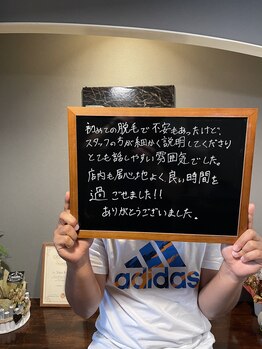 初めての脱毛で不安もあったけど、
スタッフの方が細かく説明してくださり
とても話しやすい雰囲気でした。
店内も居心地よく良い時間を
過ごせました!!
ありがとうございました。
adidas